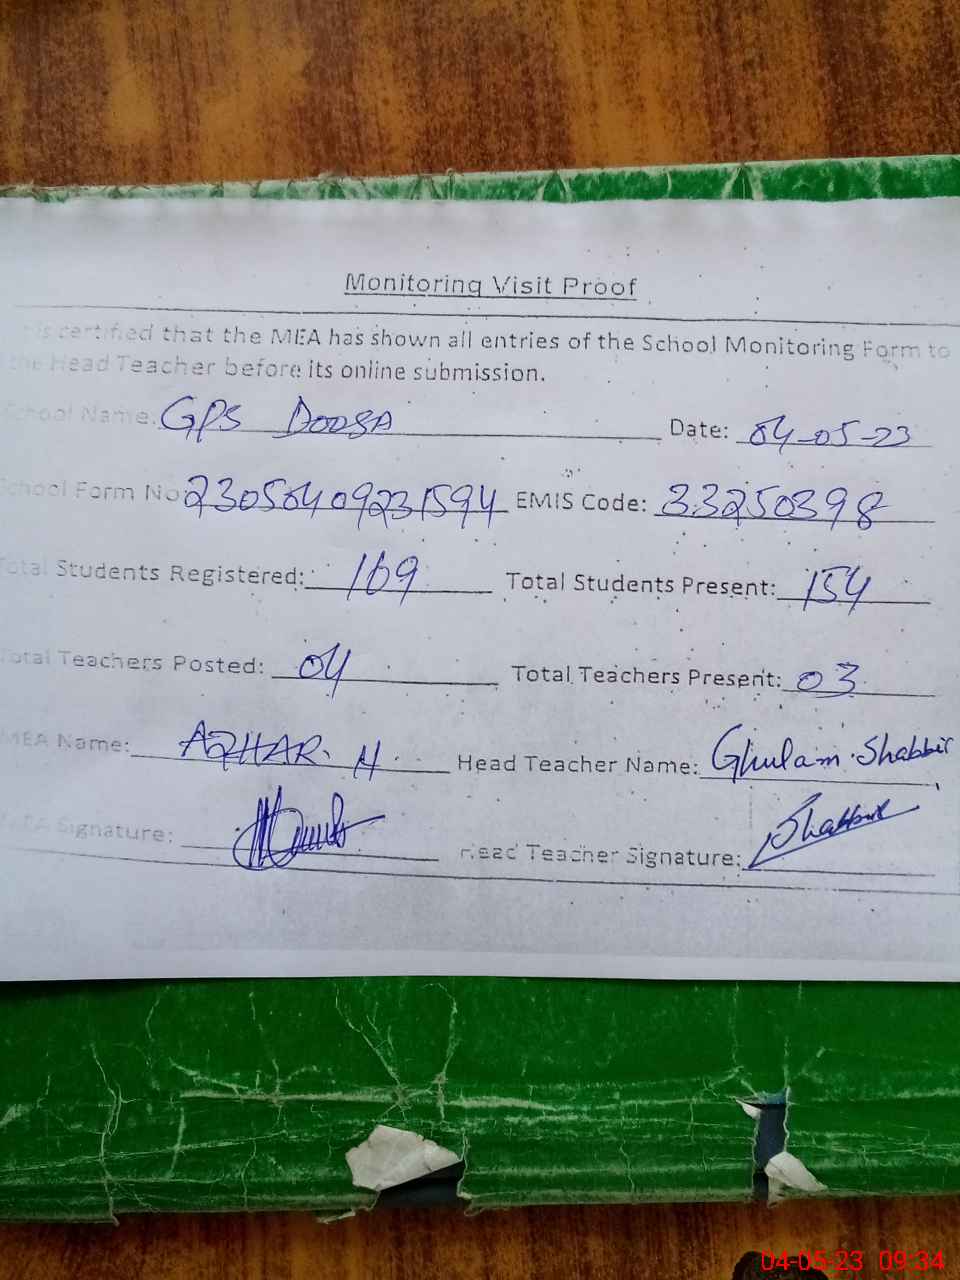 Monitoring Visit Proof
is certified that the MEA has shown all entries of the School Monitoring Form to
the Head Teacher before its online submission.
School Name: GPS DOOSA Date: 04-05-23
School Form No 23050409231594 EMIS Code: 33250398
Total Students Registered: 169 Total Students Present: 154
Total Teachers Posted: 04 Total Teachers Present: 03
MEA Name: AZHAR. H. Head Teacher Name: Ghulam Shabbir
MEA Signature: Head Teacher Signature: Shabbir
04-05-23 09:34